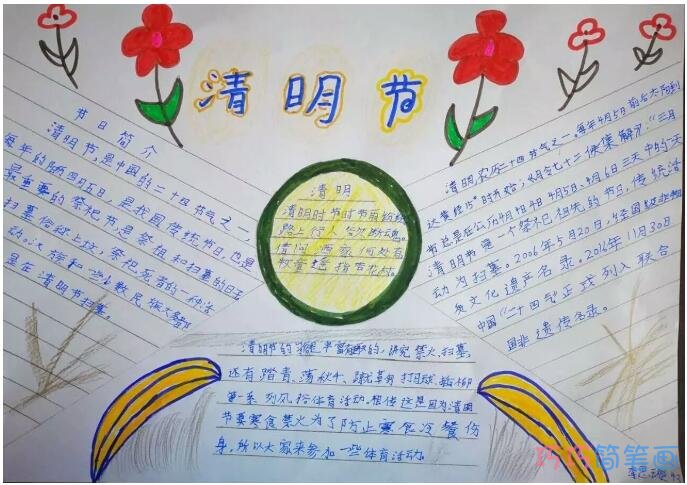 清明节
节日简介
清明节,是中国的二十四节气之一,
每年的阳历四月五日,是我国传统节日,也是
最重要的祭祀节是祭祖和扫墓的日子
扫墓俗称上坟,祭祀死者的一种活
动。汉族和一些少数民族大都
是在清明节扫墓。
清明
清明时节雨纷纷
路上行人欲断魂。
借问酒家何处有
牧童遥指杏花村。
清明农历二十四节气之一。每年4月5日前后太阳到
达黄经15°时开始;《月令七十二候集解》:“三月
节
日总是在公历4月4日4月5日、4月6日三天中的一天
清明节是一个祭祀祖先的节日,传统活
动为扫墓。2006年5月20日,
文化遗产名录。2016年11月30日
中国“二十四气”正式列入联合
国非遗传名录。
清明节的习俗是丰富有趣的,讲究禁火、扫墓
还有踏青、荡秋千、蹴鞠、打马球、插柳
等一系列风俗体育活动。相传这是因为清明
节要寒食禁火为了防止寒食冷餐伤
身,所以大家来参加一些体育活动。
简笔画